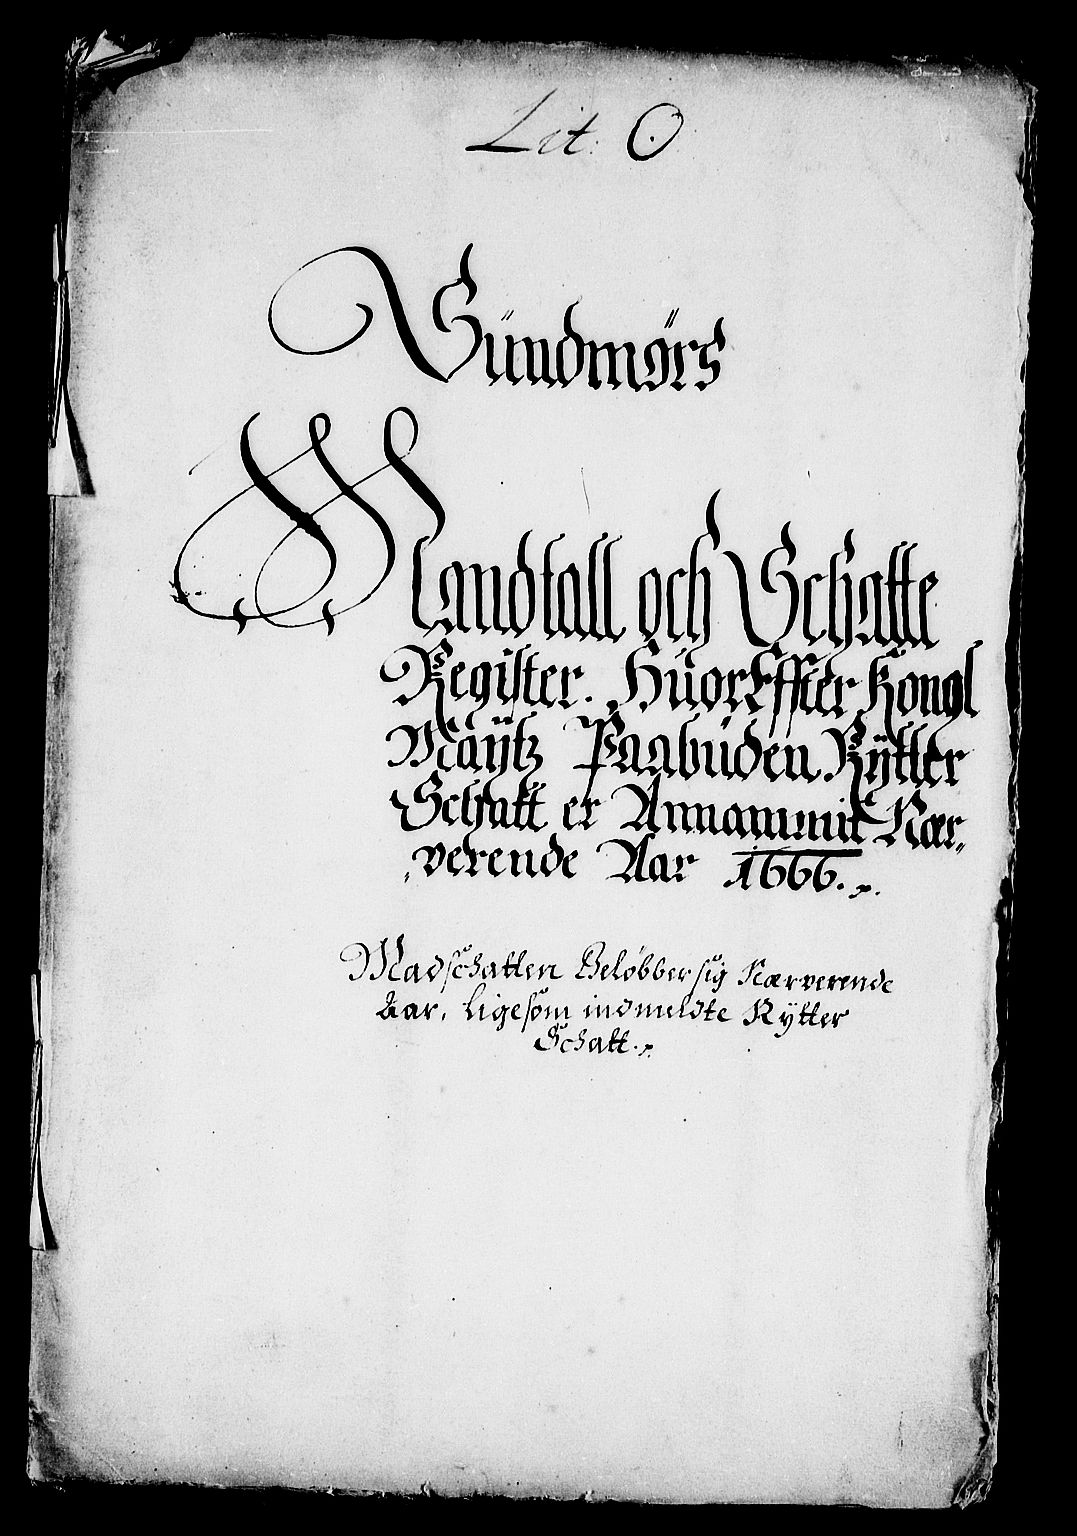 Lit: O
Sündmörs
Mandtall och Schatte
Register. Huor Effter Kongl
Maÿtz Paabuden Rÿtter
Schatt er Annammit Nær„
„verende Aar 1666.
Madschatten Beløbber sig Nærverende
Aar, ligesom indmeldte Rÿtter
Schatt.